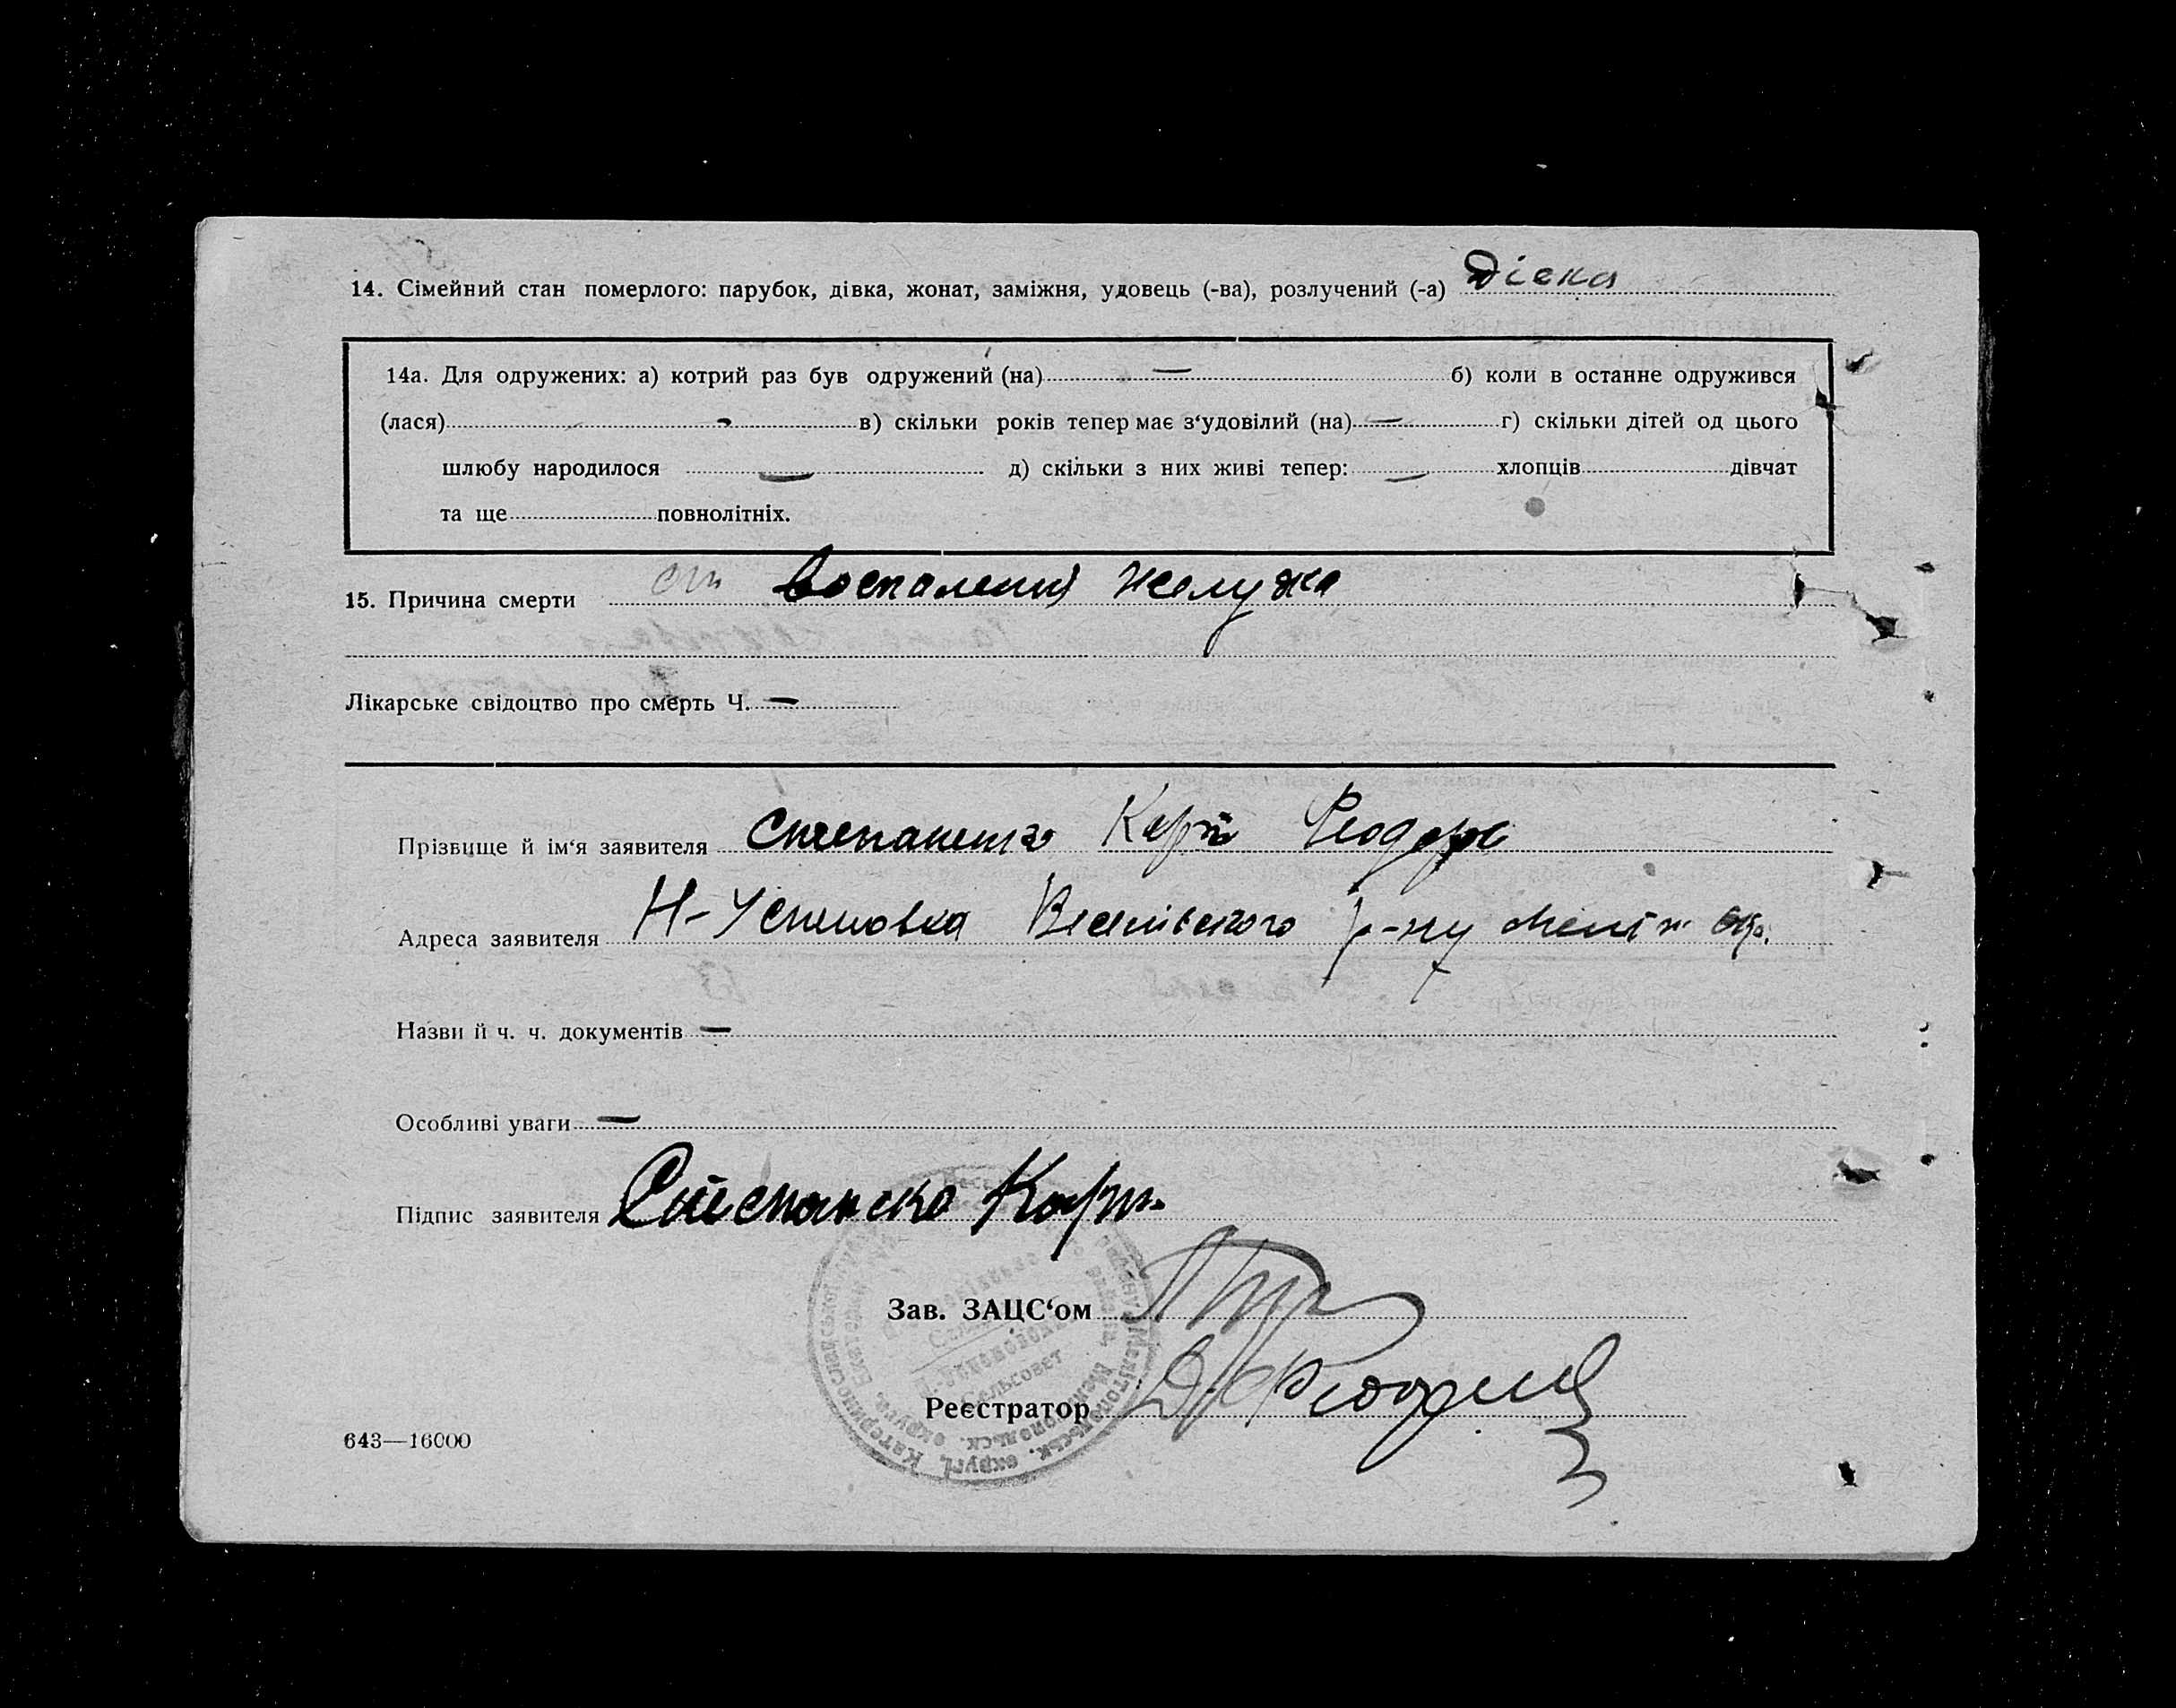 14. Сімейний стан померлого: парубок, дівка, жонат, заміжня, удовець (-ва), розлучений (-а) Дівка
14а. Для одружених: а) котрий раз був одружений (на) — б) коли в останне одружився
(лася) - в) скільки років тепер має з‘удовілий (на) — г) скільки дітей од цього
шлюбу народилося — д) скільки з них живі тепер: — хлопців дівчат
та ще повнолітніх.
15. Причина смерти от Воспаления желудка
Лікарське свідоцтво про смерть Ч. —
Прізвище й ім‘я заявителя Степаненко Карп Феодор
Адреса заявителя Н-Успеновка Веселівского р-ну Меліт. окр.
Назви й ч. ч. документів —
Особливі уваги —
Підпис заявителя Степаненко Карп
Зав. ЗАЦС‘ом
Реєстратор
Сельсовет
643—16000